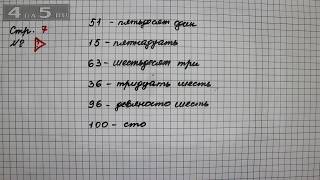 4 на 5.ru
Стр. 7
№ 1
51 - пятьдесят один
15 - пятнадцать
63 - шестьдесят три
36 - тридцать шесть
96 - девяносто шесть
100 - сто